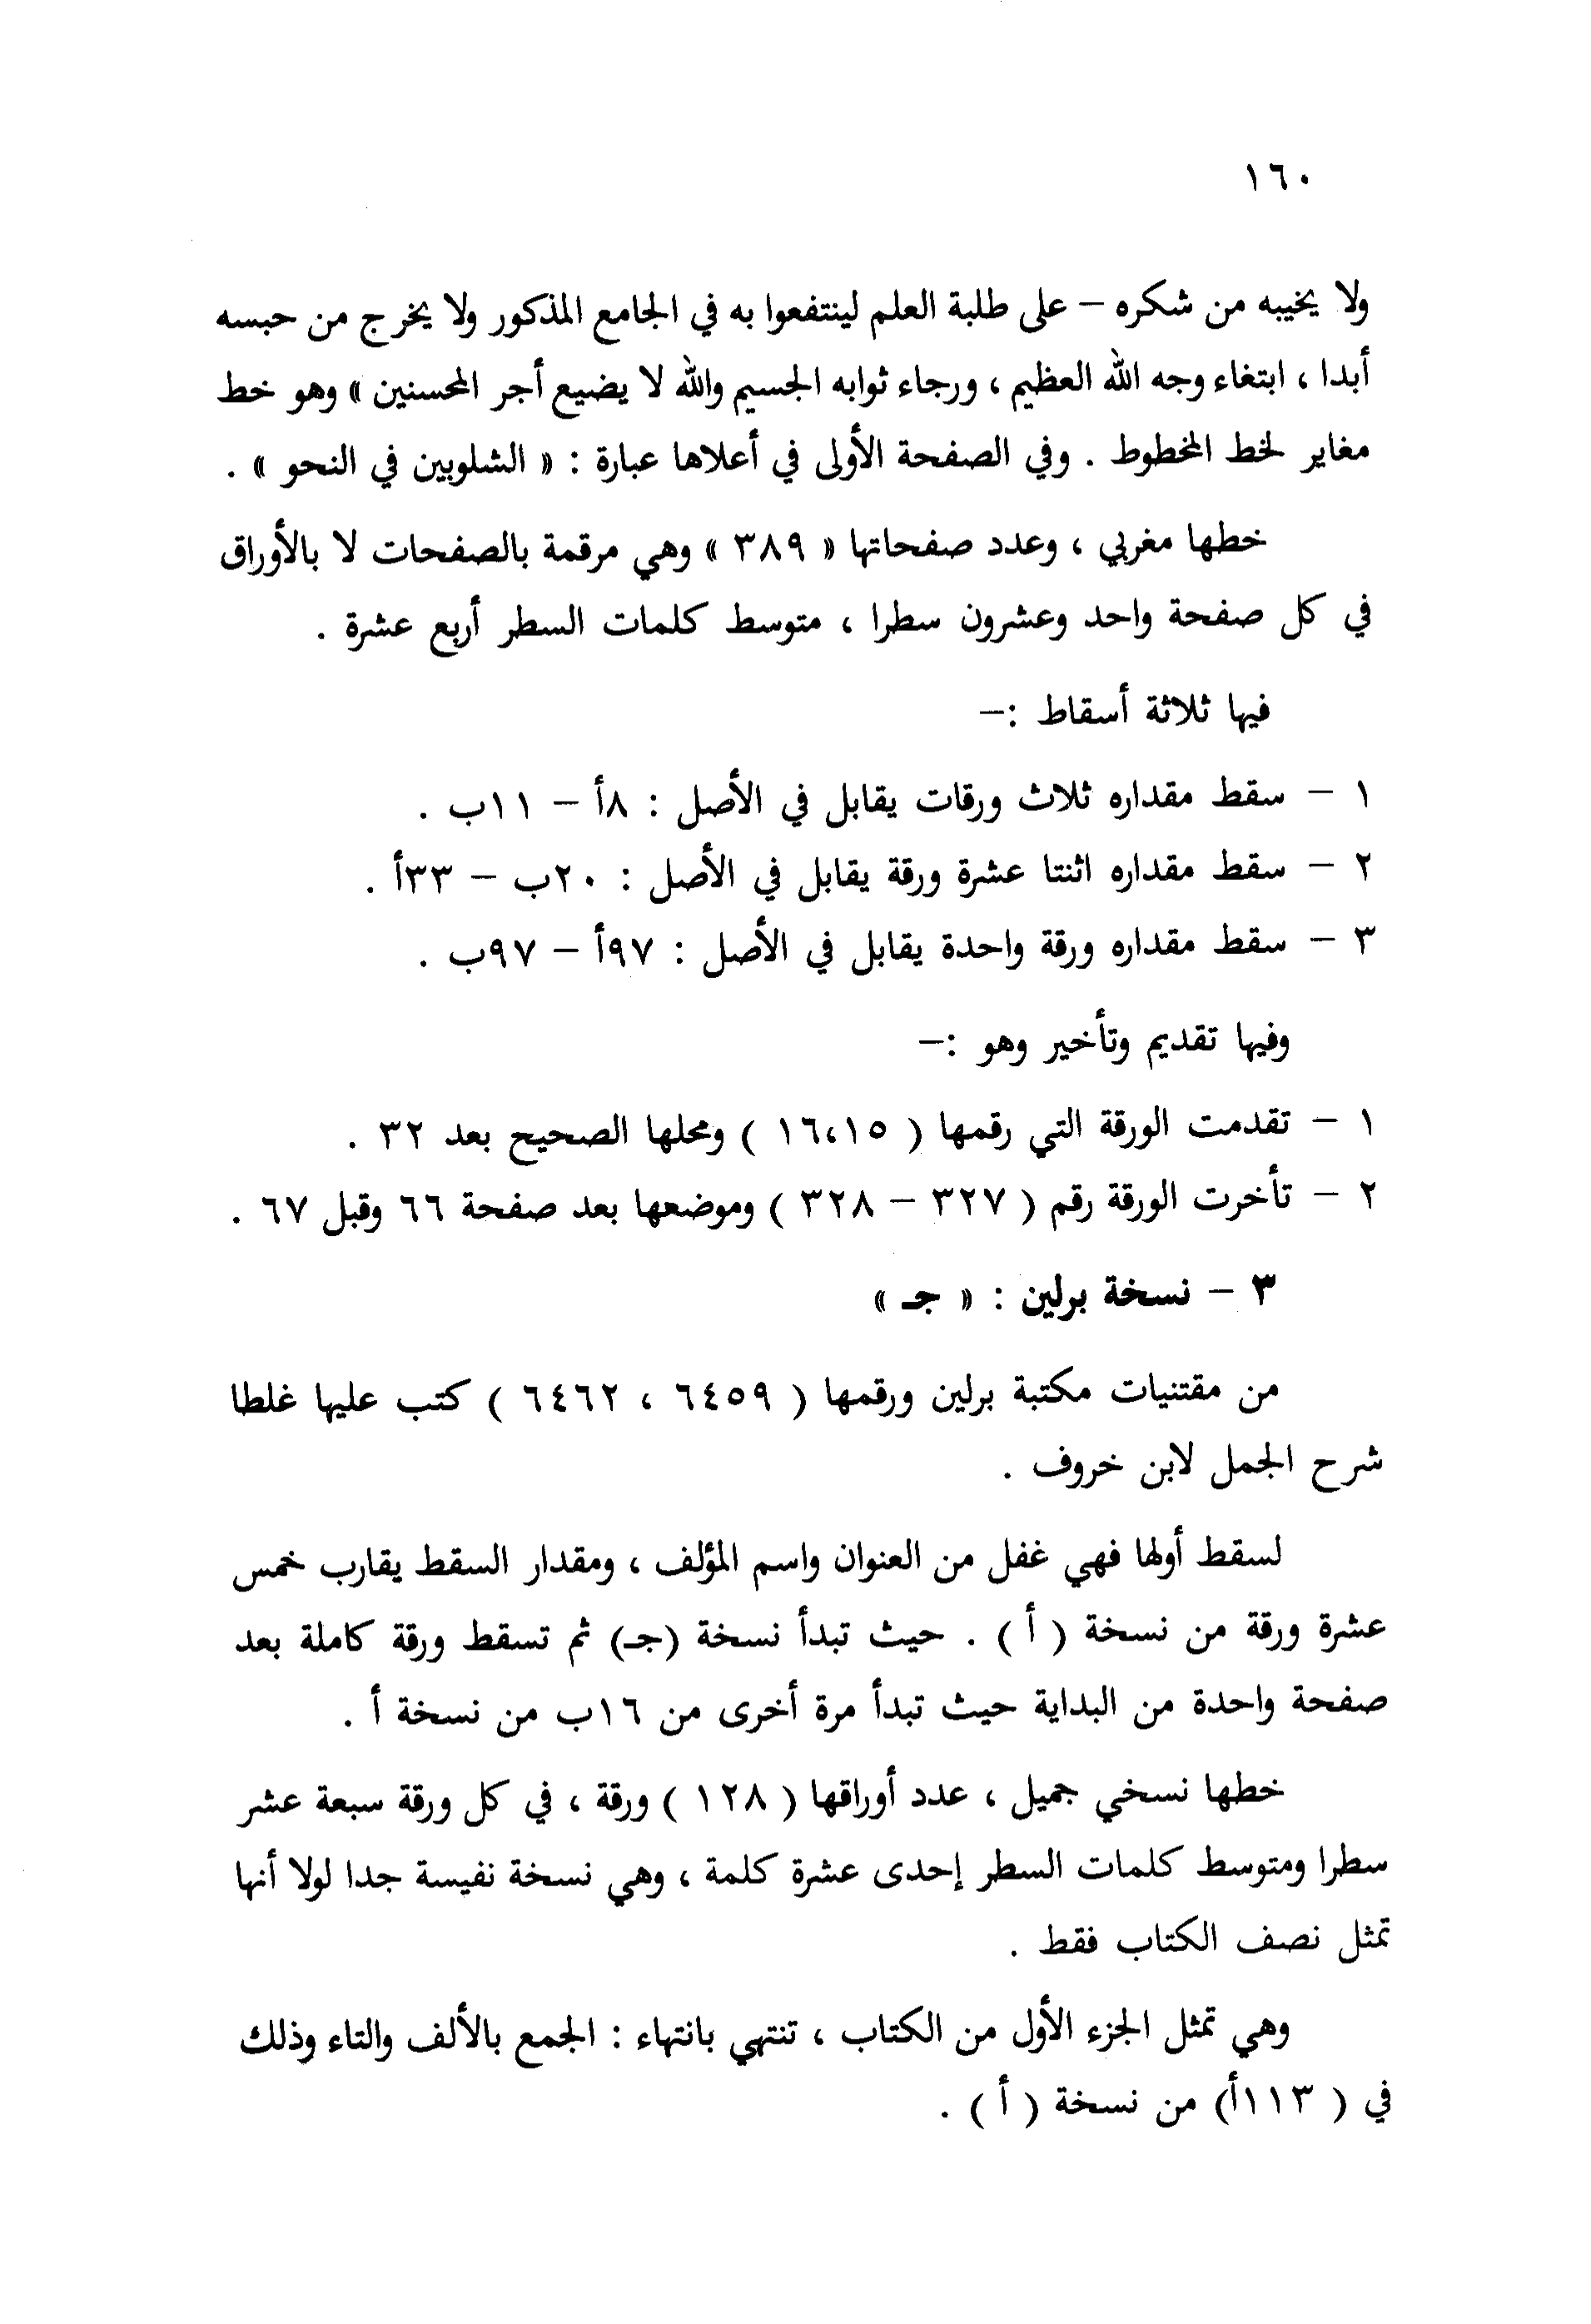 ١٦٠
ولا يخيبه من شكره – على طلبة العلم لينتفعوا به في الجامع المذكور ولا يخرج من حبسه
أبدا ، ابتغاء وجه الله العظيم ، ورجاء ثوابه الجسيم والله لا يضيع أجر المحسنين » وهو خط
مغاير لخط المخطوط . وفي الصفحة الأولى في أعلاها عبارة : « الشلوبين في النحو » .
خطها مغربي ، وعدد صفحاتها « ٣٨٩ » وهي مرقمة بالصفحات لا بالأوراق
في كل صفحة واحد وعشرون سطرا ، متوسط كلمات السطر أربع عشرة .
فيها ثلاثة أسقاط :–
١ – سقط مقداره ثلاث ورقات يقابل في الأصل : ٨أ – ١١ب .
٢ – سقط مقداره اثنتا عشرة ورقة يقابل في الأصل : ٢٠ب – ٣٣أ .
٣ – سقط مقداره ورقة واحدة يقابل في الأصل : ٩٧أ – ٩٧ب .
وفيها تقديم وتأخير وهو :–
١ – تقدمت الورقة التي رقمها ( ١٦،١٥ ) ومحلها الصحيح بعد ٣٢ .
٢ – تأخرت الورقة رقم ( ٣٢٧ – ٣٢٨ ) وموضعها بعد صفحة ٦٦ وقبل ٦٧ .
٣ – نسخة برلين : « جـ »
من مقتنيات مكتبة برلين ورقمها ( ٦٤٥٩ ، ٦٤٦٢ ) كتب عليها غلطا
شرح الجمل لابن خروف .
لسقط أولها فهي غفل من العنوان واسم المؤلف ، ومقدار السقط يقارب خمس
عشرة ورقة من نسخة ( أ ) . حيث تبدأ نسخة (جـ) ثم تسقط ورقة كاملة بعد
صفحة واحدة من البداية حيث تبدأ مرة أخرى من ١٦ب من نسخة أ .
خطها نسخي جميل ، عدد أوراقها ( ١٢٨ ) ورقة ، في كل ورقة سبعة عشر
سطرا ومتوسط كلمات السطر إحدى عشرة كلمة ، وهي نسخة نفيسة جدا لولا أنها
تمثل نصف الكتاب فقط .
وهي تمثل الجزء الأول من الكتاب ، تنتهي بانتهاء : الجمع بالألف والتاء وذلك
في ( ١١٣أ) من نسخة ( أ ) .